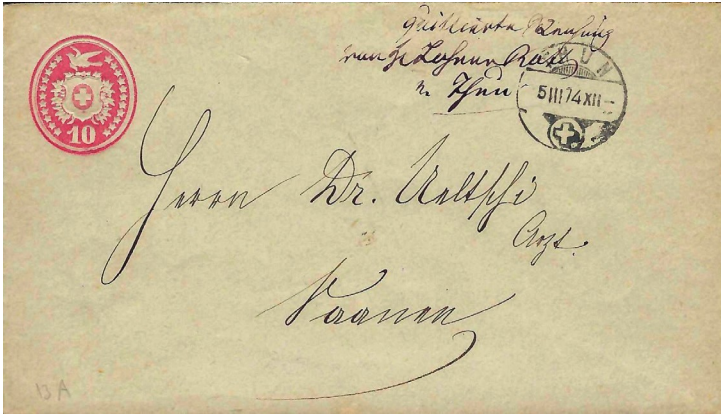 quittierte Rechnung
von
in Thun
THUN
5 III 74 XII
10
Herrn Dr. Ueltschi
Arzt.
Saanen
13 A